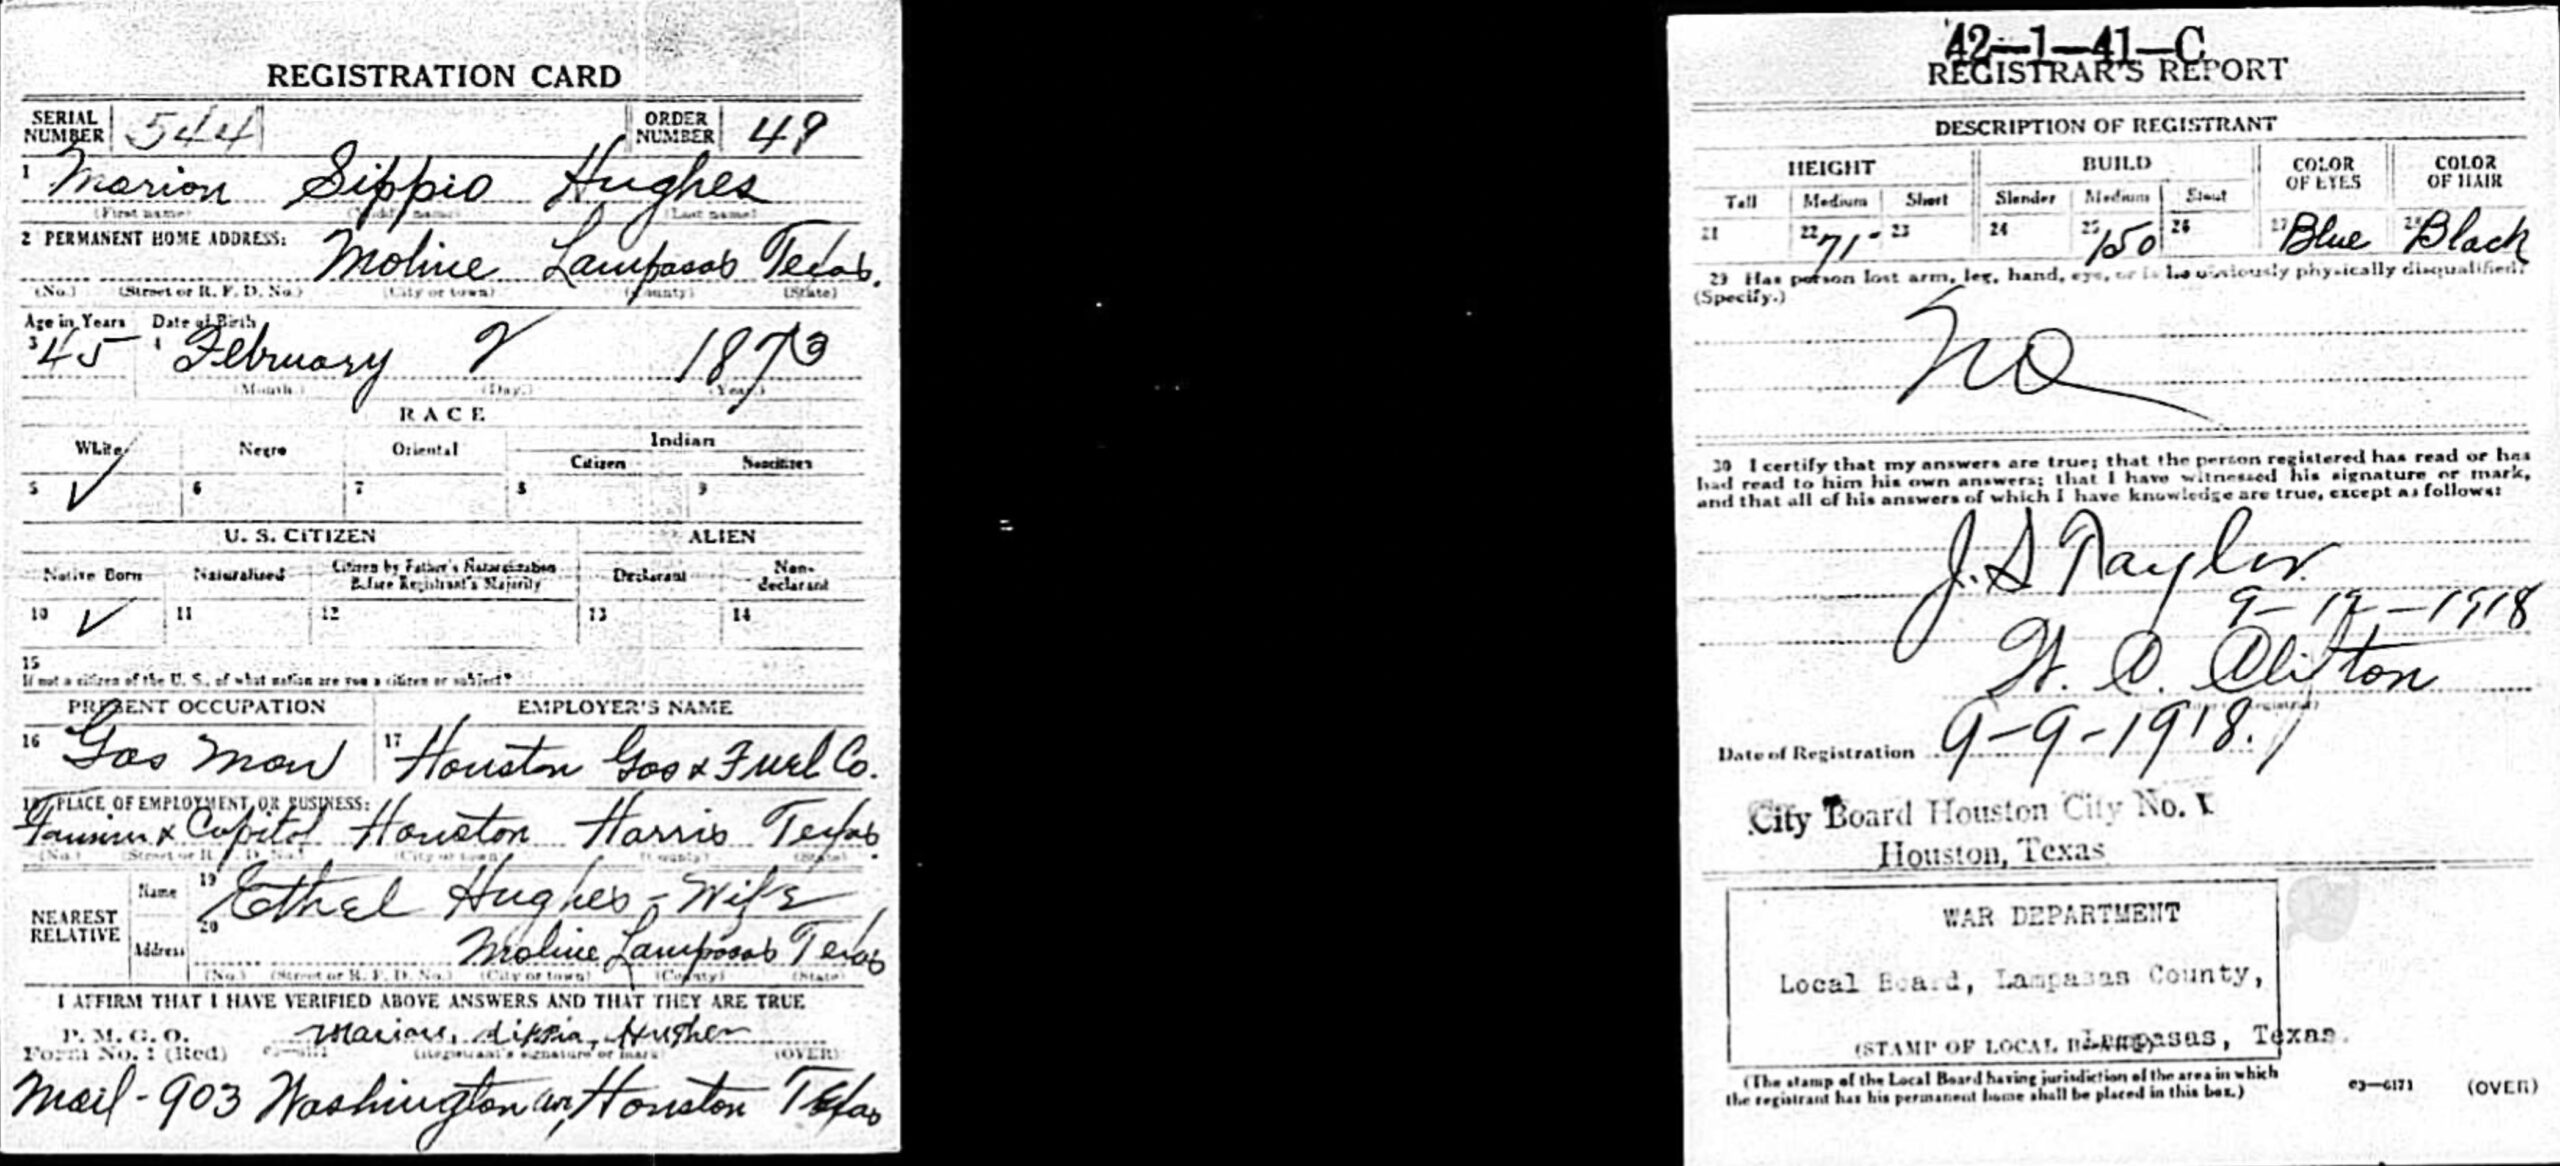 REGISTRATION CARD
SERIAL NUMBER 544 ORDER NUMBER 49
1 Marion Sippio Hughes
(First name) (Middle name) (Last name)
2 PERMANENT HOME ADDRESS:
Moline Lampasas Texas.
(No.) (Street or R. F. D. No.) (City or town) (County) (State)
Age in Years Date of Birth
3 45 4 February 2 1873
(Month.) (Day.) (Year.)
RACE
White Negro Oriental Indian
Citizen Noncitizen
5 ✓ 6 7 8 9
U. S. CITIZEN ALIEN
Native Born Naturalized Citizen by Father's Naturalization Before Registrant's Majority Declarant Non-declarant
10 ✓ 11 12 13 14
15
If not a citizen of the U. S., of what nation are you a citizen or subject?
PRESENT OCCUPATION EMPLOYER'S NAME
16 Gas man 17 Houston Gas & Fuel Co.
18 PLACE OF EMPLOYMENT OR BUSINESS:
Fannin & Capitol Houston Harris Texas.
(No.) (Street or R. F. D. No.) (City or town) (County) (State)
NEAREST RELATIVE
Name 19 Ethel Hughes - Wife
Address 20 Moline Lampasas Texas
(No.) (Street or R. F. D. No.) (City or town) (County) (State)
I AFFIRM THAT I HAVE VERIFIED ABOVE ANSWERS AND THAT THEY ARE TRUE
P. M. G. O.
Form No. 1 (Red) 03-6171 Hughes
(Registrant's signature or mark) (OVER)
Mail - 903 Washington av, Houston Texas
42-1-41-C
REGISTRAR'S REPORT
DESCRIPTION OF REGISTRANT
HEIGHT BUILD COLOR OF EYES COLOR OF HAIR
Tall Medium Short Slender Medium Stout
21 22 71" 23 24 25 150 26 27 Blue 28 Black
29 Has person lost arm, leg, hand, eye, or is he obviously physically disqualified?
(Specify.)
No
30 I certify that my answers are true; that the person registered has read or has
had read to him his own answers; that I have witnessed his signature or mark,
and that all of his answers of which I have knowledge are true, except as follows:
J. S Taylor
9-12-1918
Clifton
Date of Registration 9-9-1918.
City Board Houston City No. 1
Houston, Texas
WAR DEPARTMENT
Local Board, Lampasas County,
Lampasas, Texas.
(STAMP OF LOCAL BOARD)
(The stamp of the Local Board having jurisdiction of the area in which
the registrant has his permanent home shall be placed in this box.)
03-6171 (OVER)